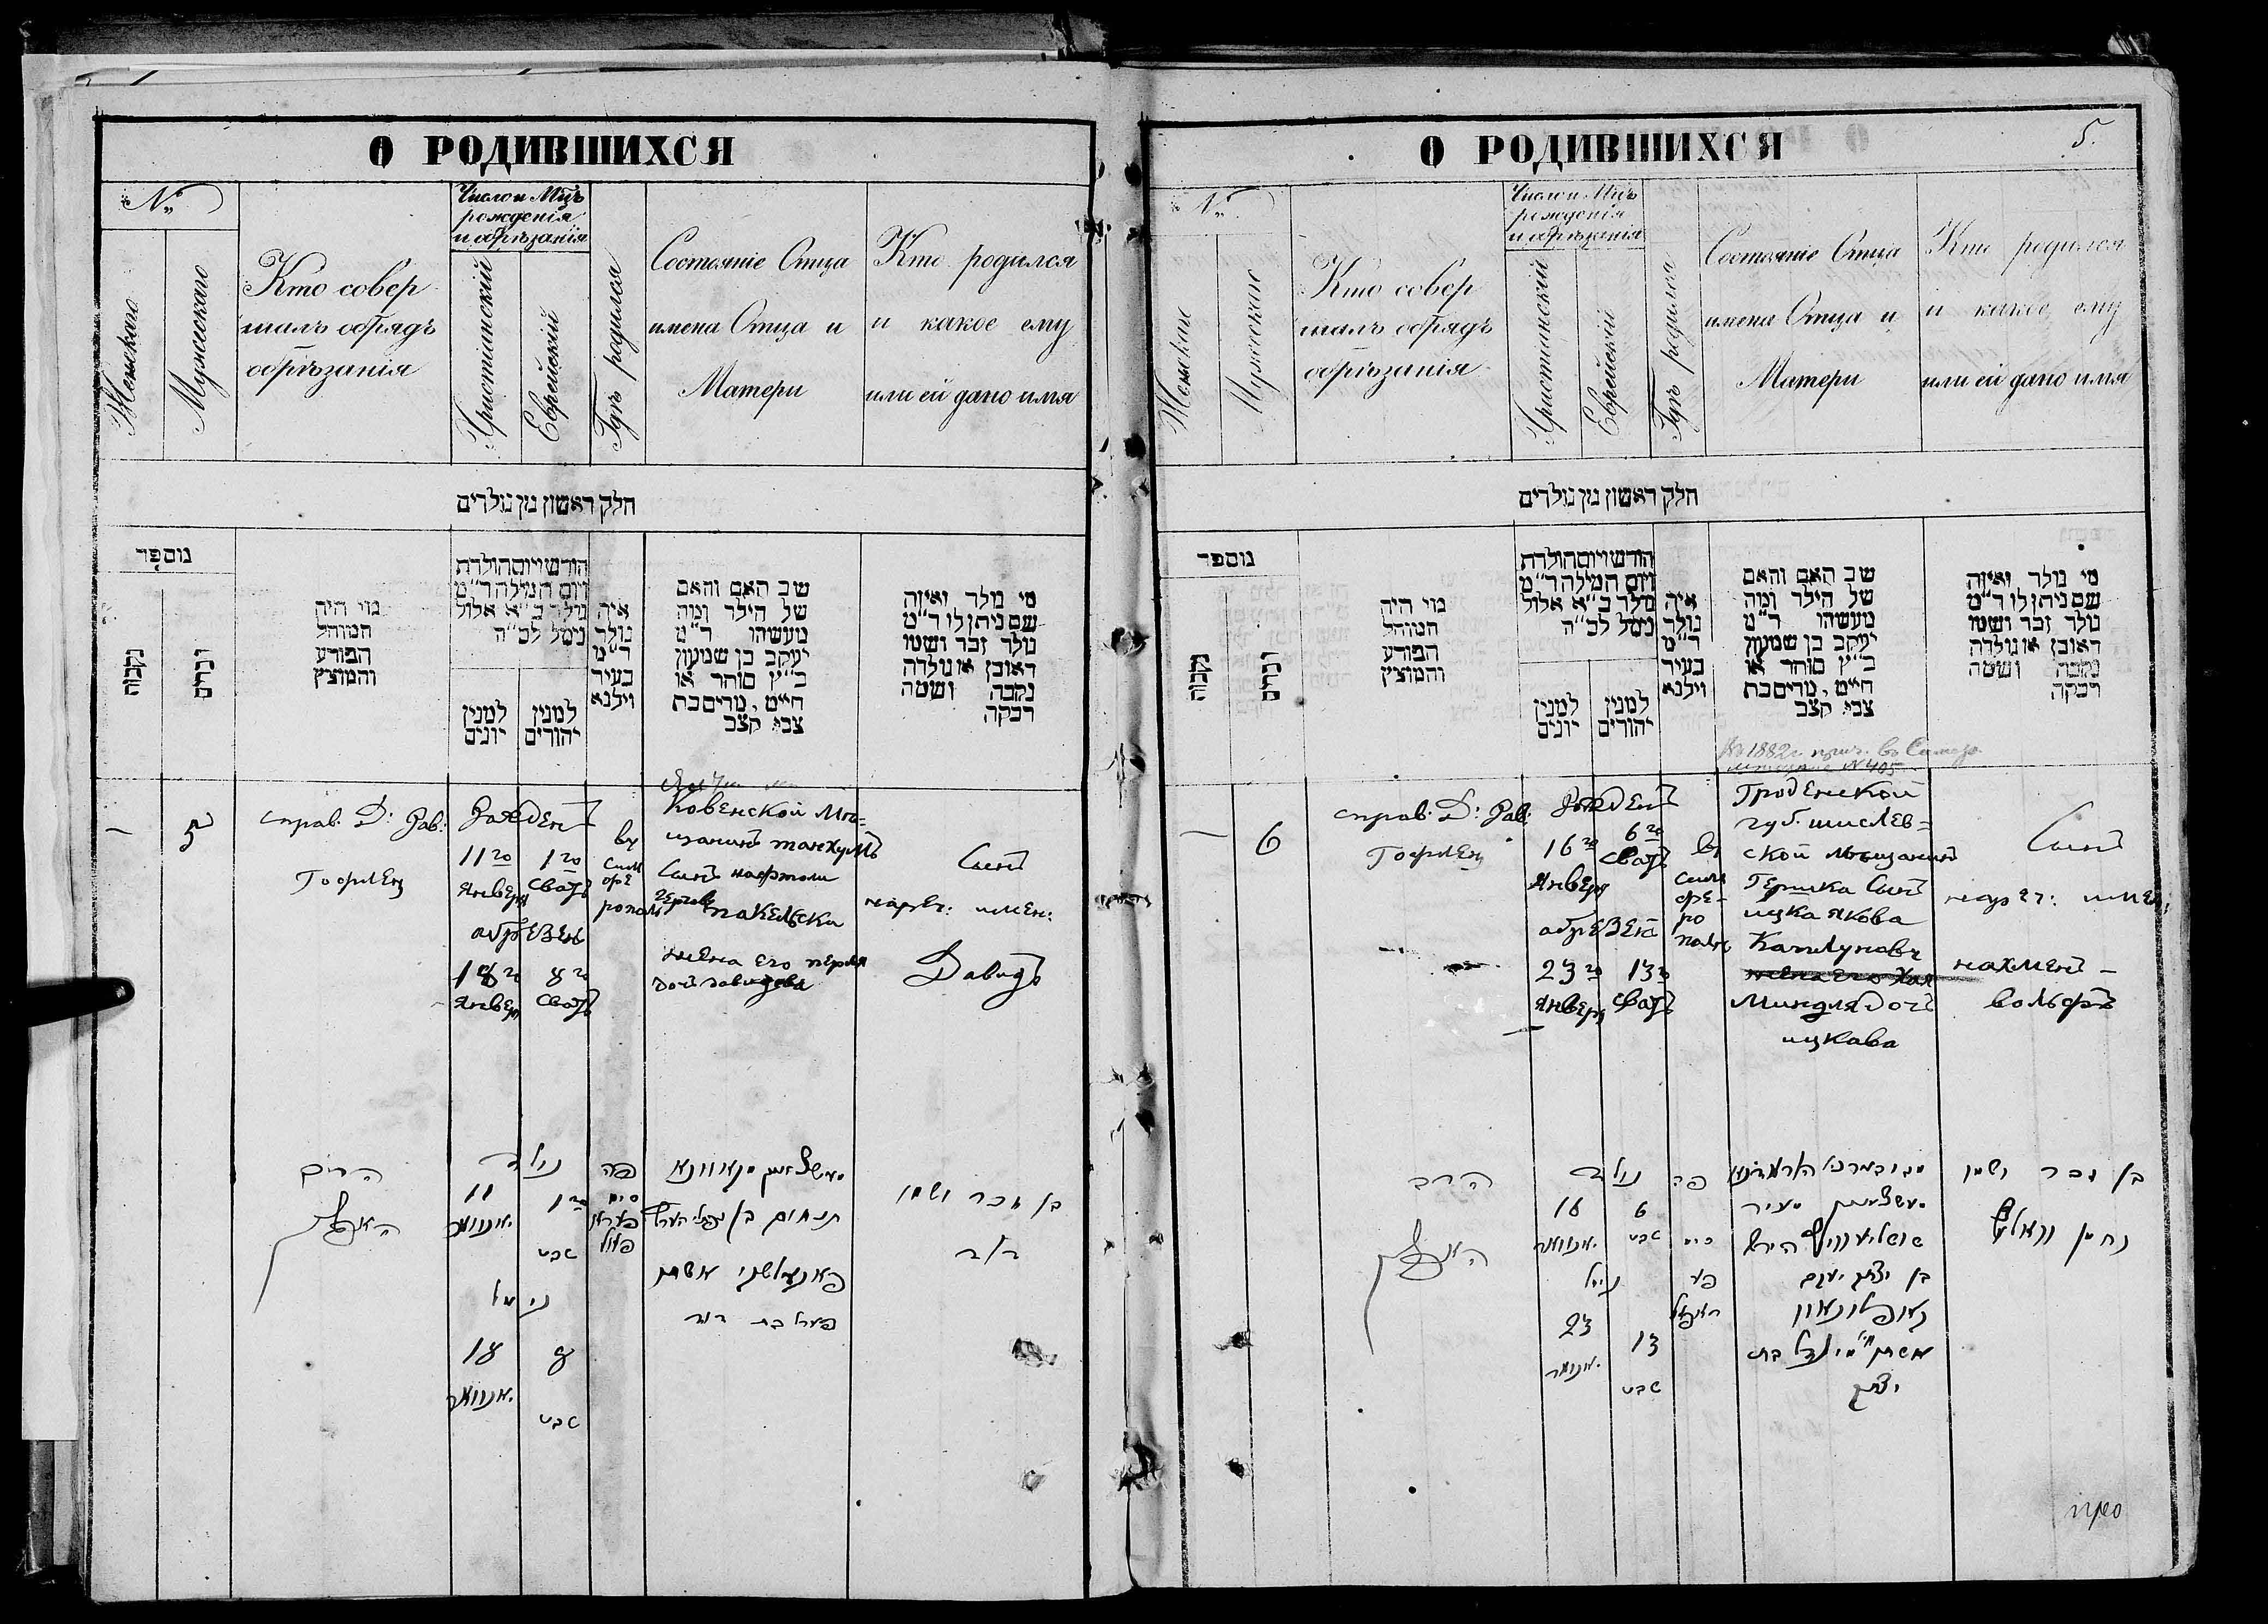 О РОДИВШИХСЯ
№
Женскаго
Мужескаго
Кто совер
шалъ обрядъ
обрѣзанія
Число и Мцъ
рожденія
и обрѣзанія
Христіанскій
Еврейскій
Гдѣ родился
Состояніе Отца
имена Отца и
Матери
Кто родился
и какое ему
или ей дано имя
חלק ראשון מן נולדים
נוספר
נקבות
זכרים
מי היה
המוהל
הפורע
והמוצץ
חודש ויום הולדת
ויום המילה ד״מ
נולד כ״א אלול
נימל לכ״ה
למנין
יונים
למנין
יהודים
איה
נולד
ד״מ
בעיר
ווילנא
שם האב והאם
של הילד ומה
מעשהו ד״מ
יעקב בן שמעון
כ״ץ סוחר או
חייט, מרים בת
צבי קצב
מי נולד ואיזה
שם ניתן לו ד״מ
נולד זכר ושמו
ראובן או נולדה
נקבה ושמה
רבקה
5
справ. Д: Рав:
Гофмец
Рожден
11 го
Январ
1 го
Сват
обрезен
18 го
Январ
8 го
Сват
въ
Сим
фе
рополе
Ковенской Мѣ=
щанин танхумъ
Сынъ нафтоли
жена его перля
доч давидова
Сынъ
нареч: имен:
Давидъ
הרב
נולד
11
יאנוואר
1
שבט
נימל
18
יאנוואר
8
שבט
פה
סים
פעראפול
תנחום בן נפתלי הערץ
פערל בת דוד
בן זכר ושמו
דוד
О РОДИВШИХСЯ
5.
№
Женскаго
Мужескаго
Кто совер
шалъ обрядъ
обрѣзанія
Число и Мцъ
рожденія
и обрѣзанія
Христіанскій
Еврейскій
Гдѣ родился
Состояніе Отца
имена Отца и
Матери
Кто родился
и какое ему
или ей дано имя
חלק ראשון מן נולדים
נוספר
נקבות
זכרים
מי היה
המוהל
הפורע
והמוצץ
חודש ויום הולדת
ויום המילה ד״מ
נולד כ״א אלול
נימל לכ״ה
למנין
יונים
למנין
יהודים
איה
נולד
ד״מ
בעיר
ווילנא
שם האב והאם
של הילד ומה
מעשהו ד״מ
יעקב בן שמעון
כ״ץ סוחר או
חייט, מרים בת
צבי קצב
מי נולד ואיזה
שם ניתן לו ד״מ
נולד זכר ושמו
ראובן או נולדה
נקבה ושמה
רבקה
6
справ: Д: Рав:
Гофмец
Рожден
16 го
Январ
6 го
Сват
обрезен
23 го
Январ
13 го
Сват
въ
Сим
фе-
ро
поле
Гроденской
губ. шислев=
ской мѣщанин
Гершка Сынъ
ицка якова
Каплунович
жена его Хая
Миндля доч
ицкава
Сынъ
нареч: имен:
нахмен -
вольфъ
הרב
נולד
16
יאנוואר
6
שבט
נימל
23
יאנוואר
13
שבט
פה
סים
פע
הירש
בן יצחק יעקב
אשתו חי׳ מינדל בת
יצחק
בן זכר ושמו
נחמן וואלף